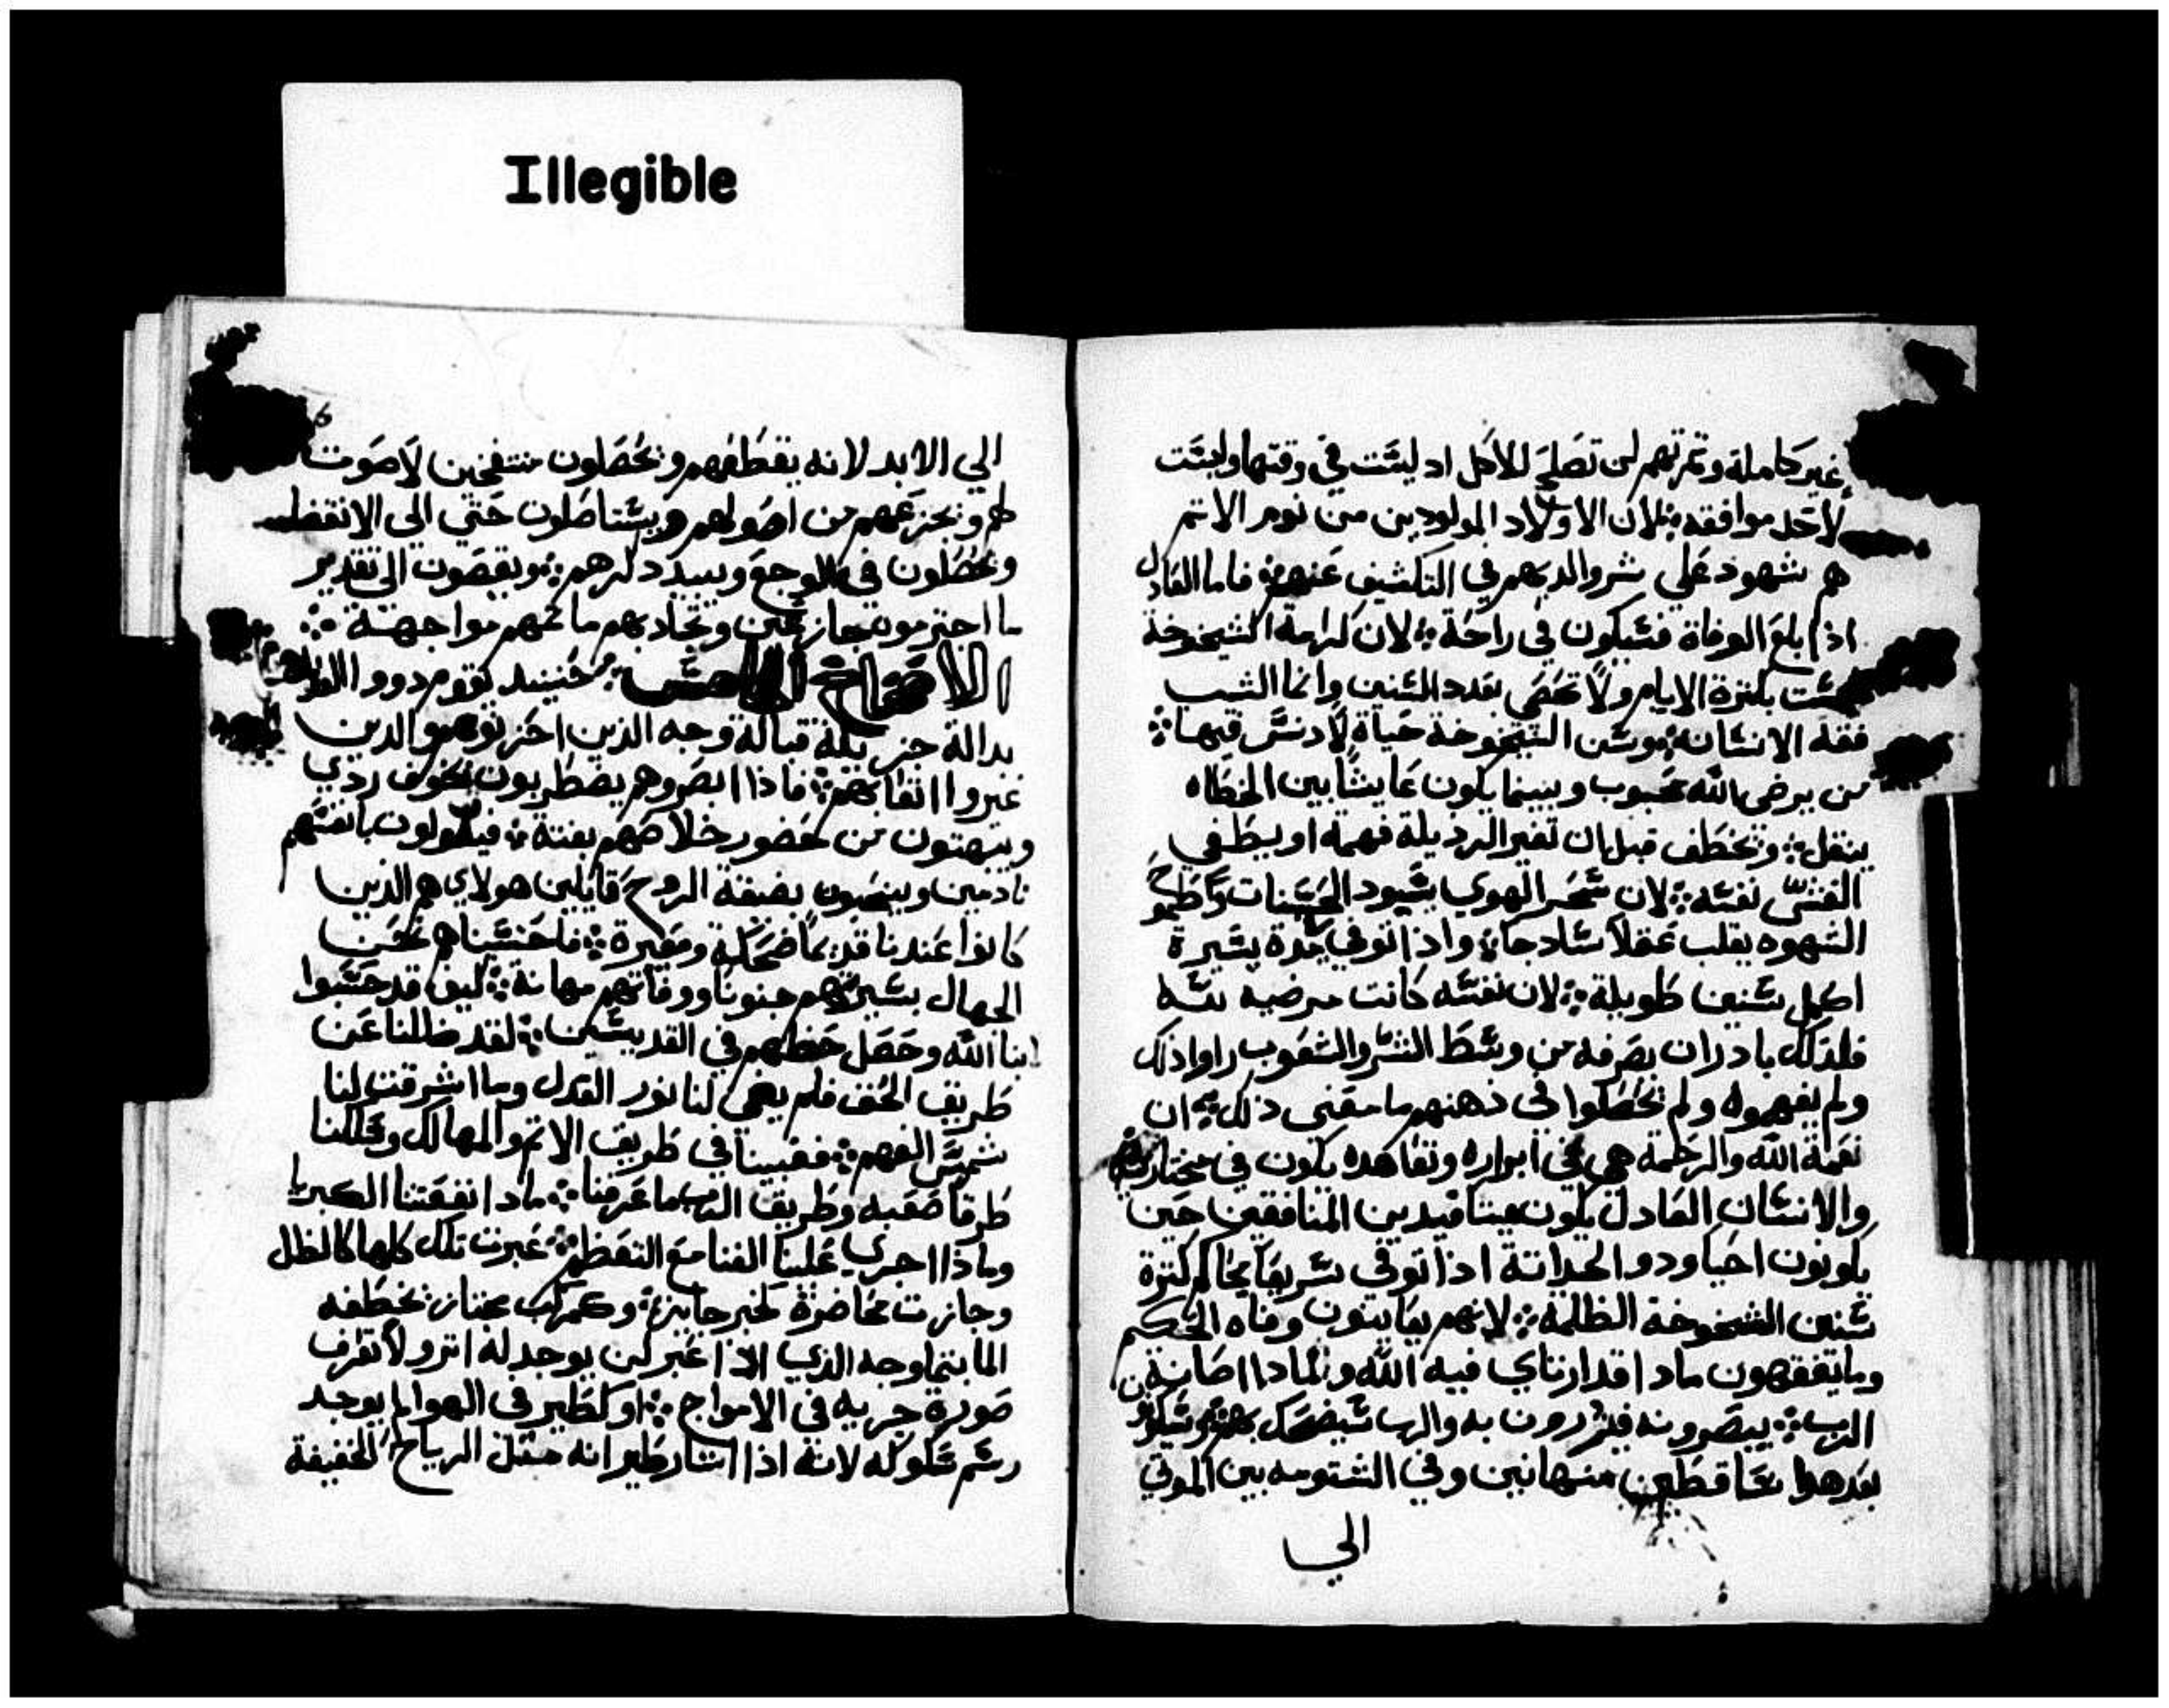 Illegible
غير كاملة وثمرتهم لن تصلح للاكل اد ليست في وقتها وليست
لاحد موافقه لان الاولاد المولودين من نوم الاثم
هم شهود علي شر والديهم في التكشيف عنهم فاما العادل
اذا بلغ الوفاة فسيكون في راحة لان كرامة الشيخوخة
ليست بكثرة الايام ولا تحصي بعدد السنين وانما الشيب
فقه الانسان وسن الشيخوخة حياة لا دنس فيها
من يرضي الله محبوب وبينما يكون عايشا بين الخطاه
ينقل وخطف قبل ان تغير الرذيلة فهمه او يطغي
الغش نفسه لان سحر الهوي يسود الحسنات وطموح
الشهوه يقلب عقلا سادجا واذا توفي بمدة يسيرة
اكمل سنين طويلة لان نفسه كانت مرضيه لله
فلذلك بادر ان يصرفه من وسط الشر والشعوب راوا ذلك
ولم يفهموه ولم يحصلوا في ذهنهم ما معني ذلك ان
نعمة الله والرحمة هي في ابراره وتعاهده يكون في مختاريه
والانسان العادل يكون ميتا فيدين المنافقين حين
يكونون احيا ودو الحداثة اذا توفي سريعا يحاكم كثرة
سنين الشيخوخة الظالمة لانهم يعاينون وفاه الحكيم
وما يتفقهون ماذا اقدار تاي فيه الله ولماذا اصانه
الرب يبصرونه فيزدرون به والرب سيضحك بهم وسيكونون
بعد هدا ساقطين منهانين وفي الشتومه بين الموتي
الي
6
الي الابد لانه يقطفهم ويحصلون منتفخين لا صوت
لهم ويزعزعهم من اصولهم ويستاصلون حتي الي الانقضا
ويحصلون في الوجع ويبيد ذكرهم ويقصون الي تقدير
ما اجترموه جازعين وتجاذبهم ماثمهم مواجهة
الاصحاح الخامس حينيد تقوم دووا
بدالة جزيلة قبالة وجه الذين احزنوهم والدين
غيروا اتعابهم فاذا ابصروهم يضطربون بخوف ردي
ويبهتون من حضور خلاصهم بغتة فيقولون بانفسهم
نادمين وينتحبون بضيقة الروح قايلين هولاي هم الذين
كانوا عندنا قديما ضحكة ومعيرة فاحتسبنا نحن
الجهال سيرتهم جنونا ووفاتهم مهانة كيف قد حسبوا
ابنا الله وحصل حظهم في القديسين لقد ضللنا عن
طريق الحق فلم يضي لنا نور العدل وما اشرقت لنا
شمس الفهم فعيينا في طريق الاثم والمهالك وسلكنا
طرقا صعبه وطريق الرب ما عرفنا ماذا نفعتنا الكبريا
وماذا اجري علينا الغنا مع التعظم عبرت تلك كلها كالظل
وجازت محاضرة كخبر جايزة وكمركب مجتاز خطفه
الما بتماوجه الذي اذا عبر لن يوجد له اثر ولا تعرف
صورة جريه في الامواج او كطير في الهوا لم يوجد
رسم سلوكه لانه اذا اثار طيرانه مثل الرياح الخفيفة